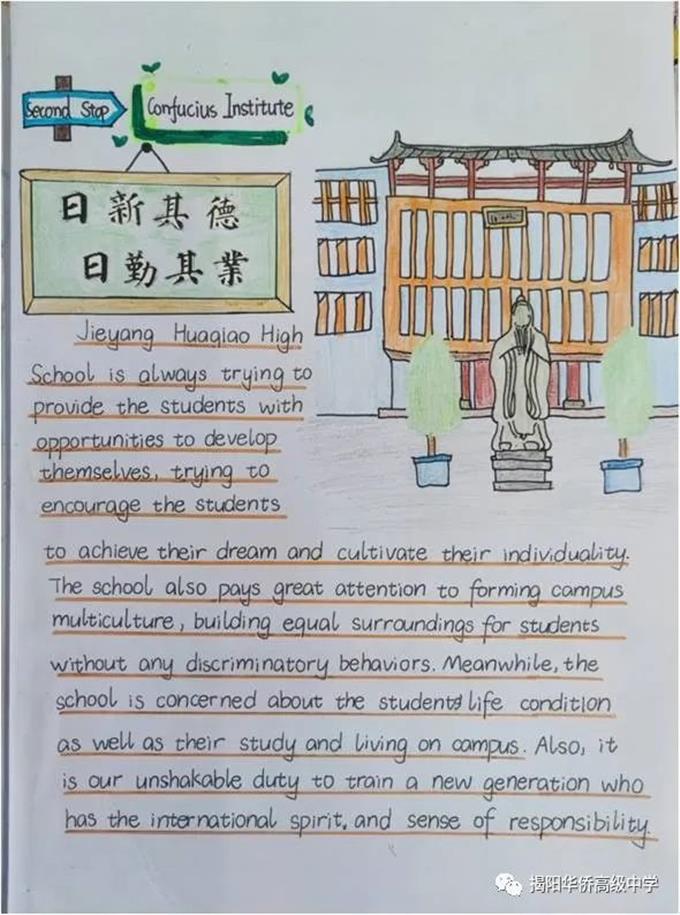 Second Stop
Confucius Institute
日新其德
日勤其業
Jieyang Huaqiao High
School is always trying to
provide the students with
opportunities to develop
themselves, trying to
encourage the students
to achieve their dream and cultivate their individuality.
The school also pays great attention to forming campus
multiculture, building equal surroundings for students
without any discriminatory behaviors. Meanwhile, the
school is concerned about the students life condition
as well as their study and living on campus. Also, it
is our unshakable duty to train a new generation who
has the international spirit, and sense of responsibility.
揭阳华侨高级中学